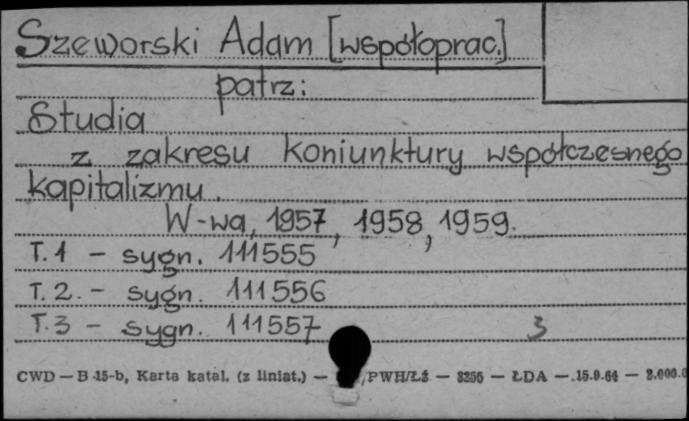 Szeworski Adam [współoprac.]
patrz:
Studia
z zakresu koniunktury współczesnego
kapitalizmu.
W-wa, 1957, 1958, 1959.
T.1 - sygn. 111555
T.2. - sygn. 111556
T.3 - sygn. 111557
3
CWD — B-15-b, Karta katal. (z liniat.) — PWH/Łź — 8256 — ŁDA — 15.9.64 — 2.000.0